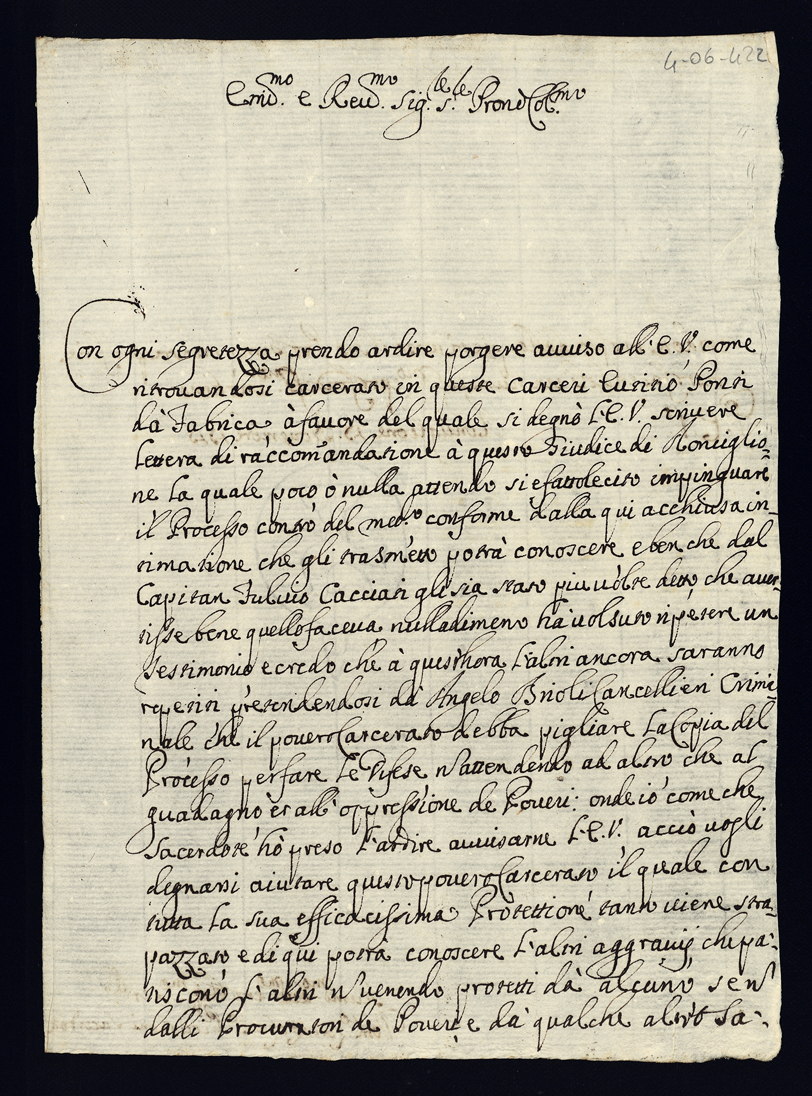 4-06-422
Emin.mo e Reu.mo Sig.le s.le Prone Col.mo
Con ogni segretezza prendo ardire porgere auuiso all'E.V. come
ritrouandosi carcerato in queste Carceri Ponti
dà Fabrica à fauore del quale si degnò L'E.V. scriuere
Lettera di raccomandatione à questo Giudice di Ronciglio=
ne La quale poco ò nulla attendo si è fatto lecito impinguare
il Processo contro del med.o conforme dalla qui acchiusa in=
timatione che gli trasmetto potrà conoscere e ben che dal
Capitan Fuluio Cacciati gli sia stato più uolte detto che auer=
tisse bene quello faceua nulladimeno hà uolsuto ripetere un
Testimonio e credo che à quest'hora L'altri ancora saranno
repetiti pretendendosi dà Angelo Brioli Cancellieri Crimi=
nale che il pouero Carcerato debba pigliare La Copia del
Processo per fare Le difese n'attendendo ad altro che al
guadagno et all'oppressione de Poueri: onde io come che
Sacerdote hò preso L'ardire auuisarne L'E.V. acciò uogli
degnarsi aiutare questo pouero Carcerato il quale con
tutta La sua efficacissima Protettione tanto uiene stra=
pazzato e di qui potrà conoscere L'altri aggrauij che pa=
tiscono L'altri n'uenendo protetti dà alcuno se n'
dalli Procuratori de Poueri e dà qualche altro Sa=